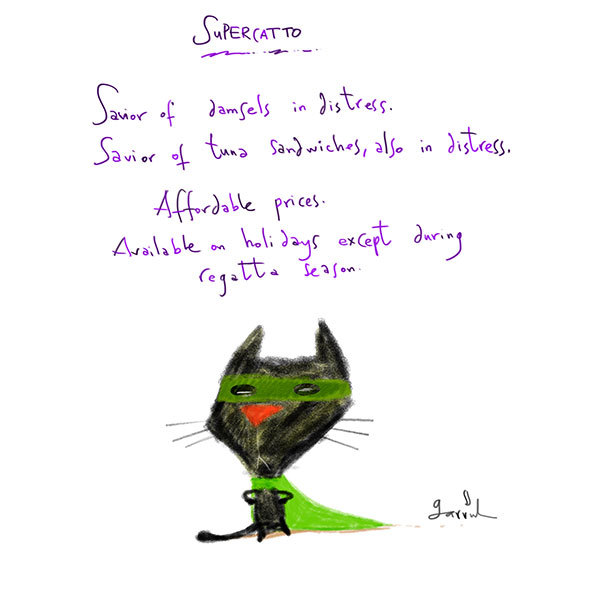 SUPERCATTO
Savior of damsels in distress.
Savior of tuna sandwiches, also in distress.
Affordable prices.
Available on holidays except during
regatta season.